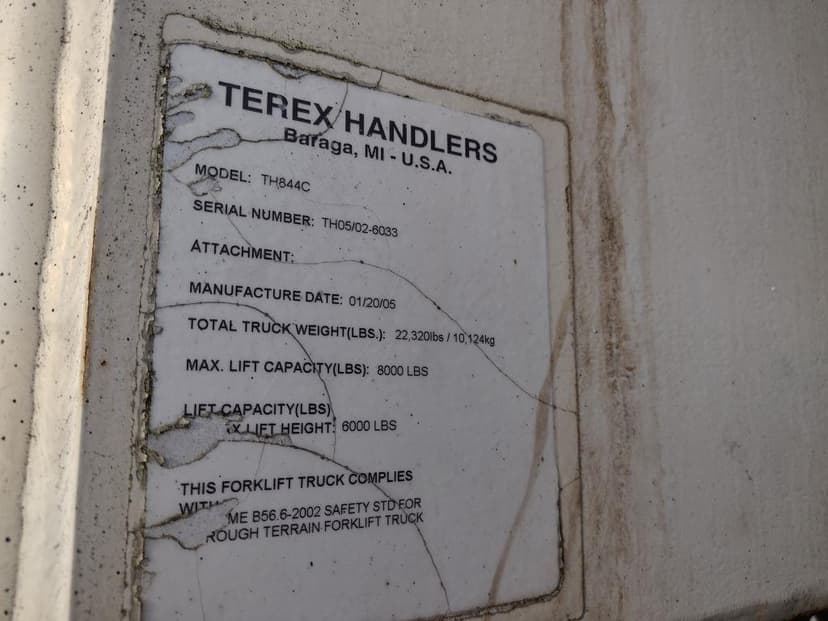 TEREX HANDLERS
Baraga, MI - U.S.A.
MODEL: TH844C
SERIAL NUMBER: TH05/02-6033
ATTACHMENT:
MANUFACTURE DATE: 01/20/05
TOTAL TRUCK WEIGHT(LBS.): 22,320lbs / 10,124kg
MAX. LIFT CAPACITY(LBS): 8000 LBS
LIFT CAPACITY(LBS)
X LIFT HEIGHT: 6000 LBS
THIS FORKLIFT TRUCK COMPLIES
WITH ME B56.6-2002 SAFETY STD FOR
ROUGH TERRAIN FORKLIFT TRUCK